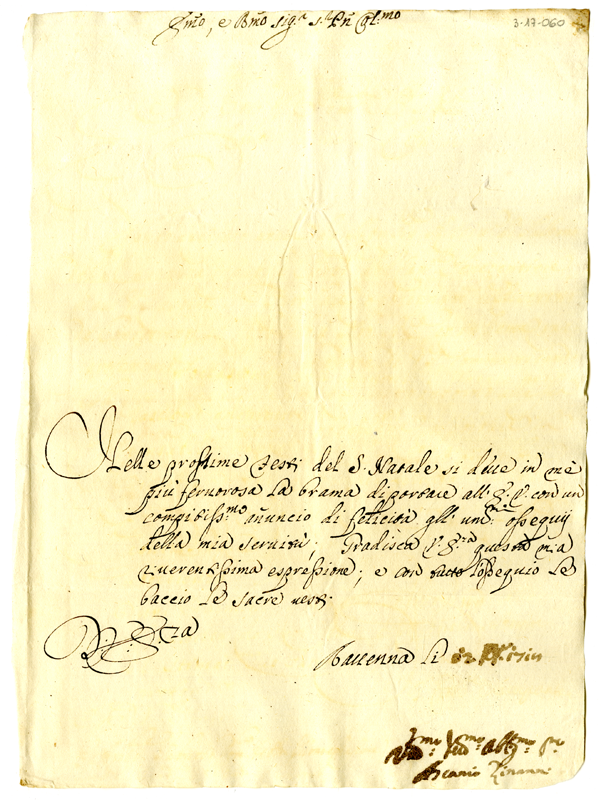 Em.o, e R.mo Sig.r S.r Pñ Col.mo
3-17-060
Nelle prossime Feste del S. Natale si deve in mè
più fervorosa la brama di portare all' E. V. con un
compitiss.mo añuncio di felicità gli um.mi ossequij
della mia servitù; Gradisca V. E.za questa mia
riverentissima espressione; e con tutto l'ossequio le
baccio le sacre vesti.
Di V. E.za
Ravenna li
Um.mo Dev.mo Obl.mo S.re
Ascanio Zinanni